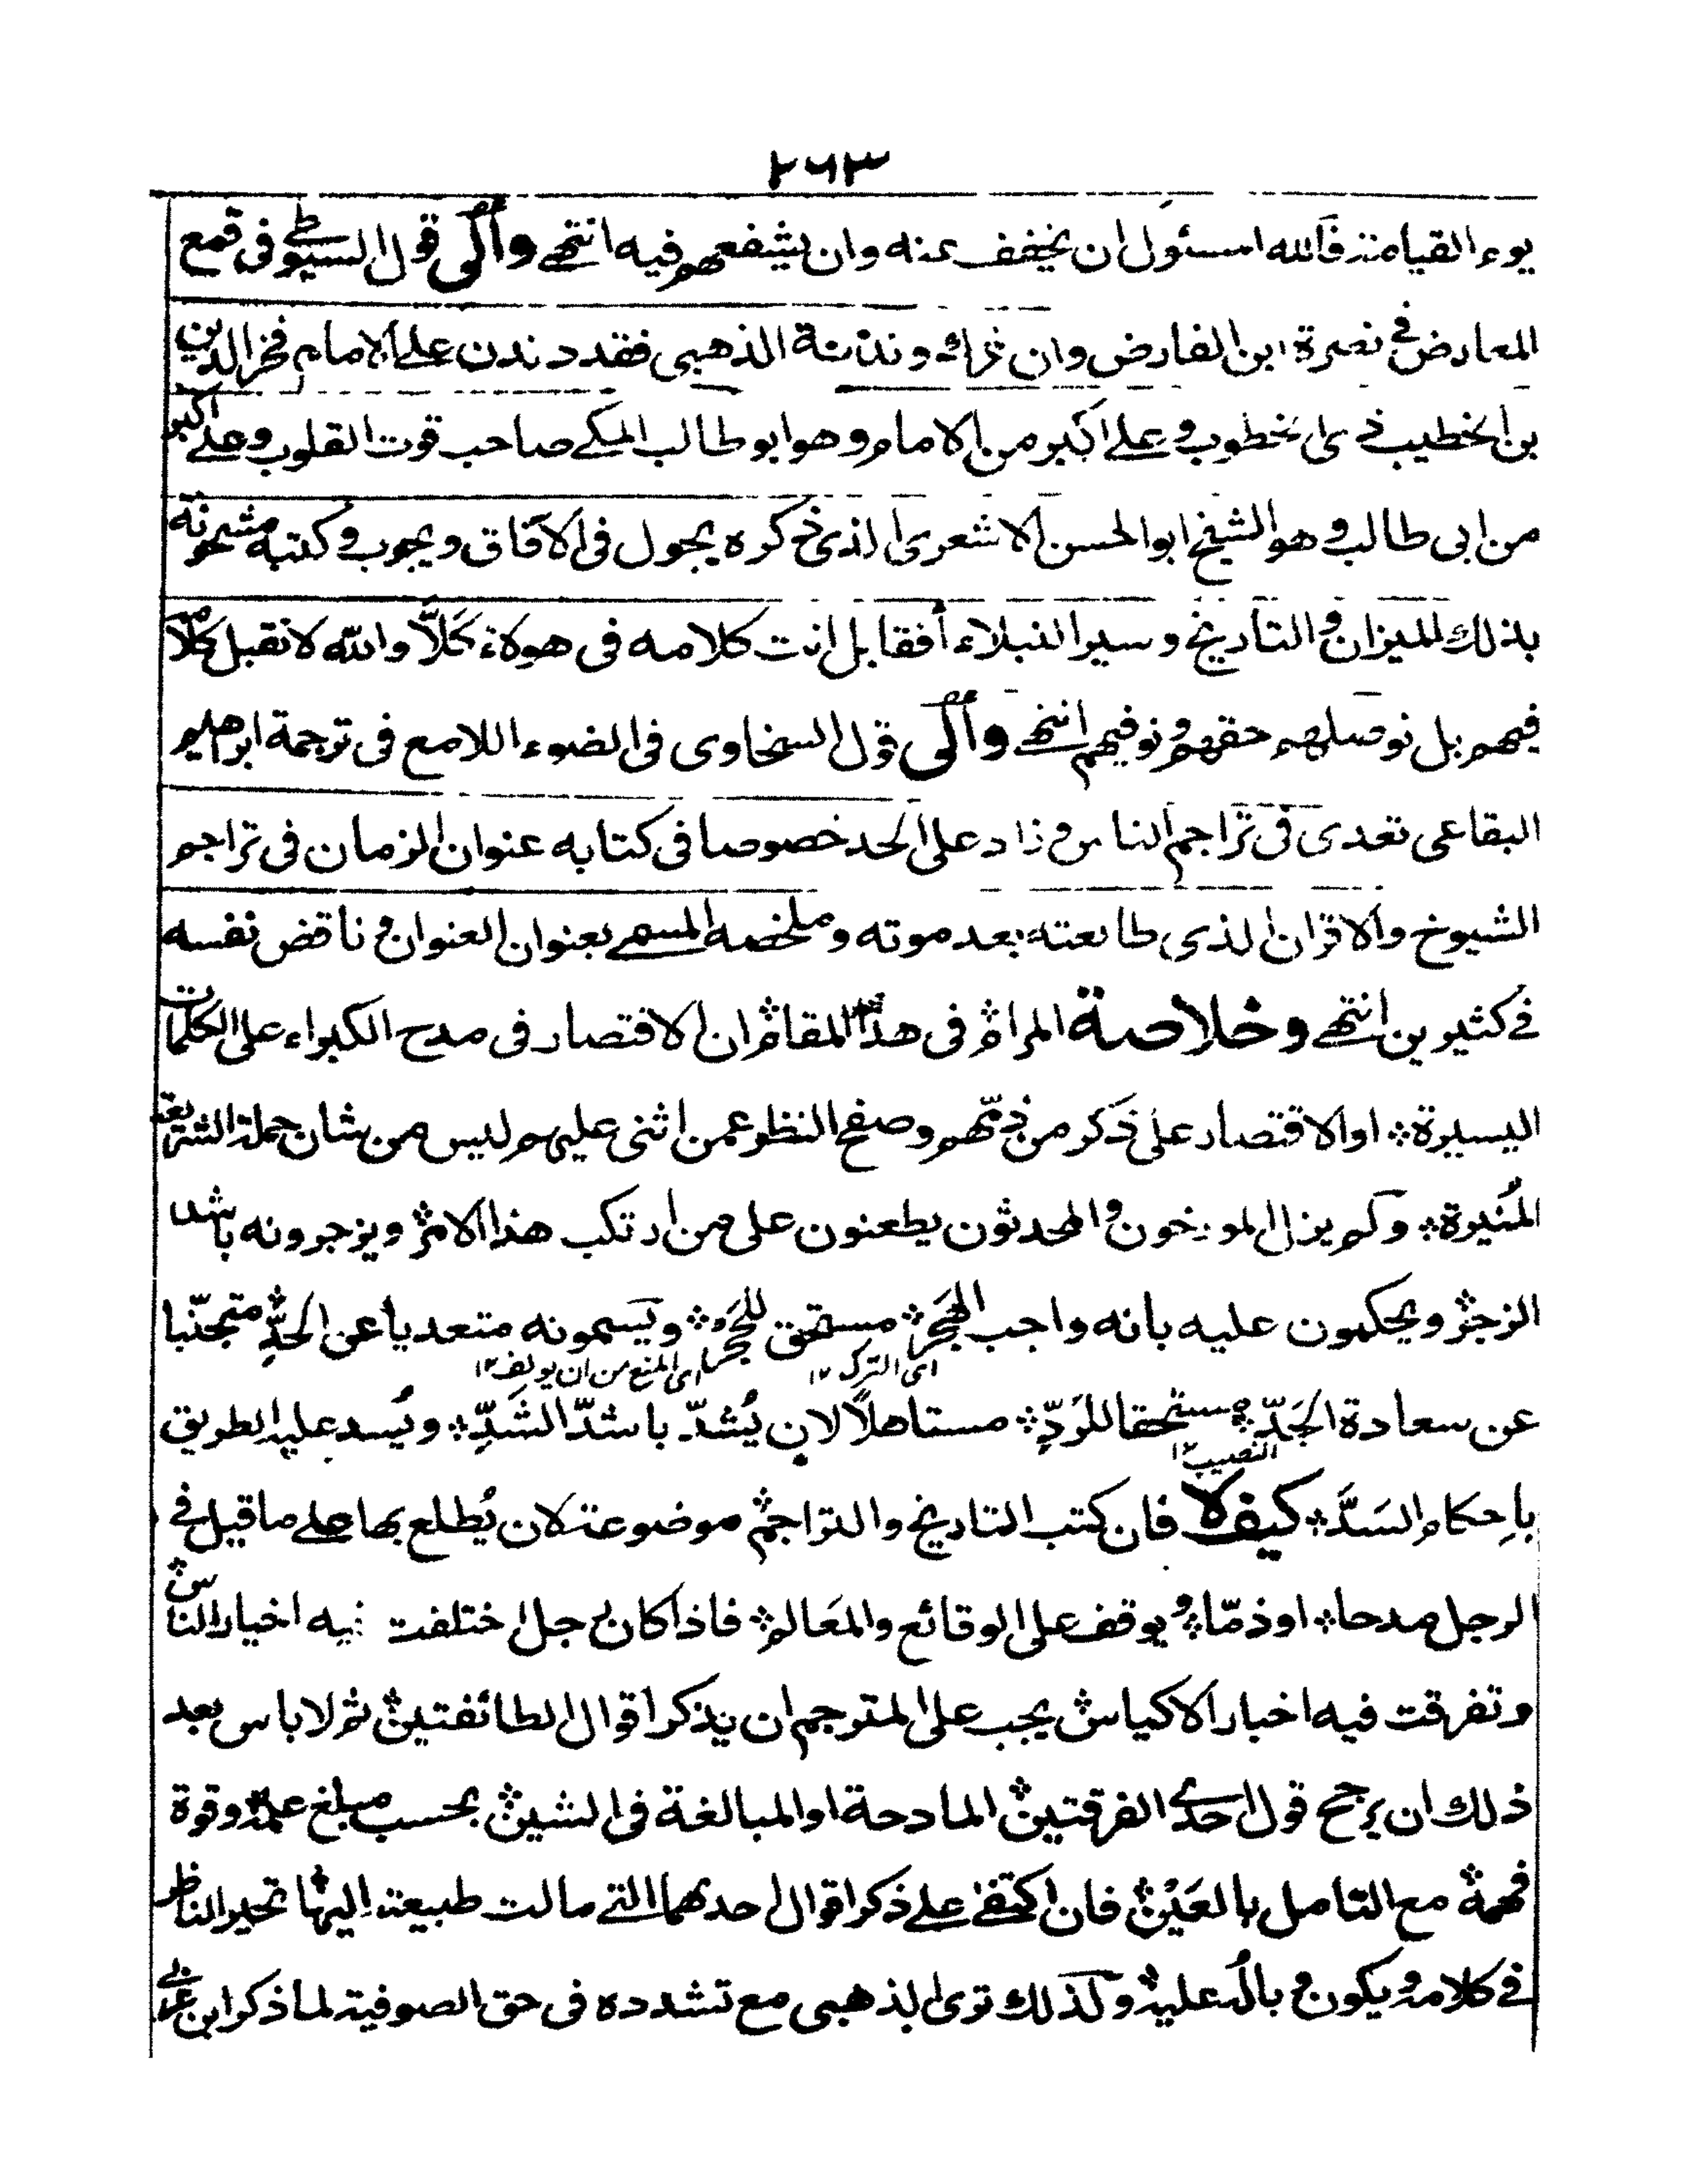 ٢٦٣
يوم القيامة فالله المسئول ان يخفف عنه وان يشفعهم فيه انتهى والى قول السيوطي فى قمع
المعارض فى نصرة ابن الفارض وان غرك دندنة الذهبى فقد دندن على الامام فخر الدين
بن الخطيب ذى الخطوب وعلى اكبر من الامام وهو ابو طالب المكى صاحب قوت القلوب وعلى اكبر
من ابى طالب وهو الشيخ ابو الحسن الاشعرى الذى ذكره يجول فى الآفاق ويجوب وكتبه مشحونة
بذلك الميزان والتاريخ وسير النبلاء أفقابل انت كلامه فى هولاء كَلَّا والله لا نقبل كلامه
فيهم بل نوصلهم حقهم ونوفيهم انتهى والى قول السخاوى فى الضوء اللامع فى ترجمة ابراهيم
البقاعى تعدى فى تراجم الناس وزاد على الحد خصوصا فى كتابه عنوان الزمان فى تراجم
الشيوخ والاقران الذى طالعته بعد موته وملخصه المسمى بعنوان العنوان وناقض نفسه
فى كثيرين انتهى وخلاصة المرام فى هذا المقام ان الاقتصار فى مدح الكبراء على الكلمات
اليسيرة اوالاقتصار على ذكر من ذمّهم وصفح النظر عمن اثنى عليهم ليس من شان حملة الشريعة
المُنيرة ولم يزل المورخون والمحدثون يطعنون على من ارتكب هذا الامر ويزجرونه باشد
الزجر ويحكمون عليه بانه واجب الهَجر مستحق للحَجر ويسمونه متعديا عن الحدِّ متجنّبا
اى الترك ١٢ اى المنع من ان يولف ١٢
عن سعادة الجَدّ مستحقا للرَدِّ مستاهلاً لان يُشدّ باشدّ الشَدِّ ويُسد عليه الطريق
النصيب ١٢
باِحكام السَدَّ كيف لا فان كتب التاريخ والتراجم موضوعة لان يُطلع بها على ما قيل فى
الرجل مدحا او ذمّا ويوقف على الوقائع والمَعالم فاذا كان رجل اختلفت فيه اخبار الناس
وتفرقت فيه اخبار الاكياس يجب على المترجم ان يذكر اقوال الطائفتين ثم لا باس بعد
ذلك ان يرجح قول احدى الفرقتين المادحة او المبالغة فى الشين بحسب مبلغ علمه وقوة
فهمه مع التامل بالعَيْن فان اكتفى على ذكر اقوال احدىهما التى مالت طبيعته اليها تحير الناظر
فى كلامه ويكون وبالُه عليه وكذلك ترى الذهبى مع تشدده فى حق الصوفية لما ذكر ابن عربى